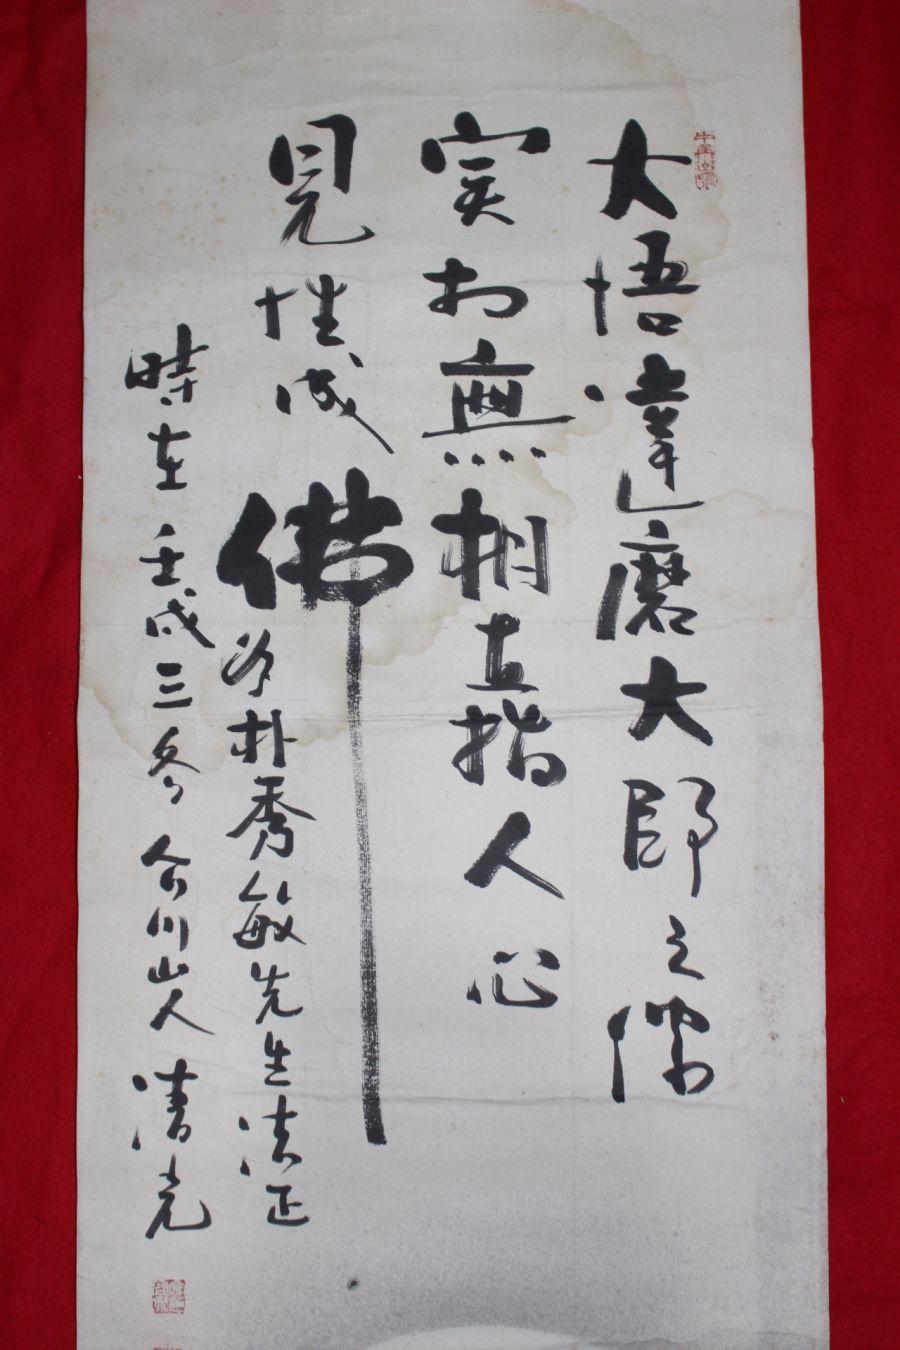 大悟達磨大師之像
実相無相直指人心
見性成佛
為朴秀敏先生法正
時在壬戌三冬合川山人清光